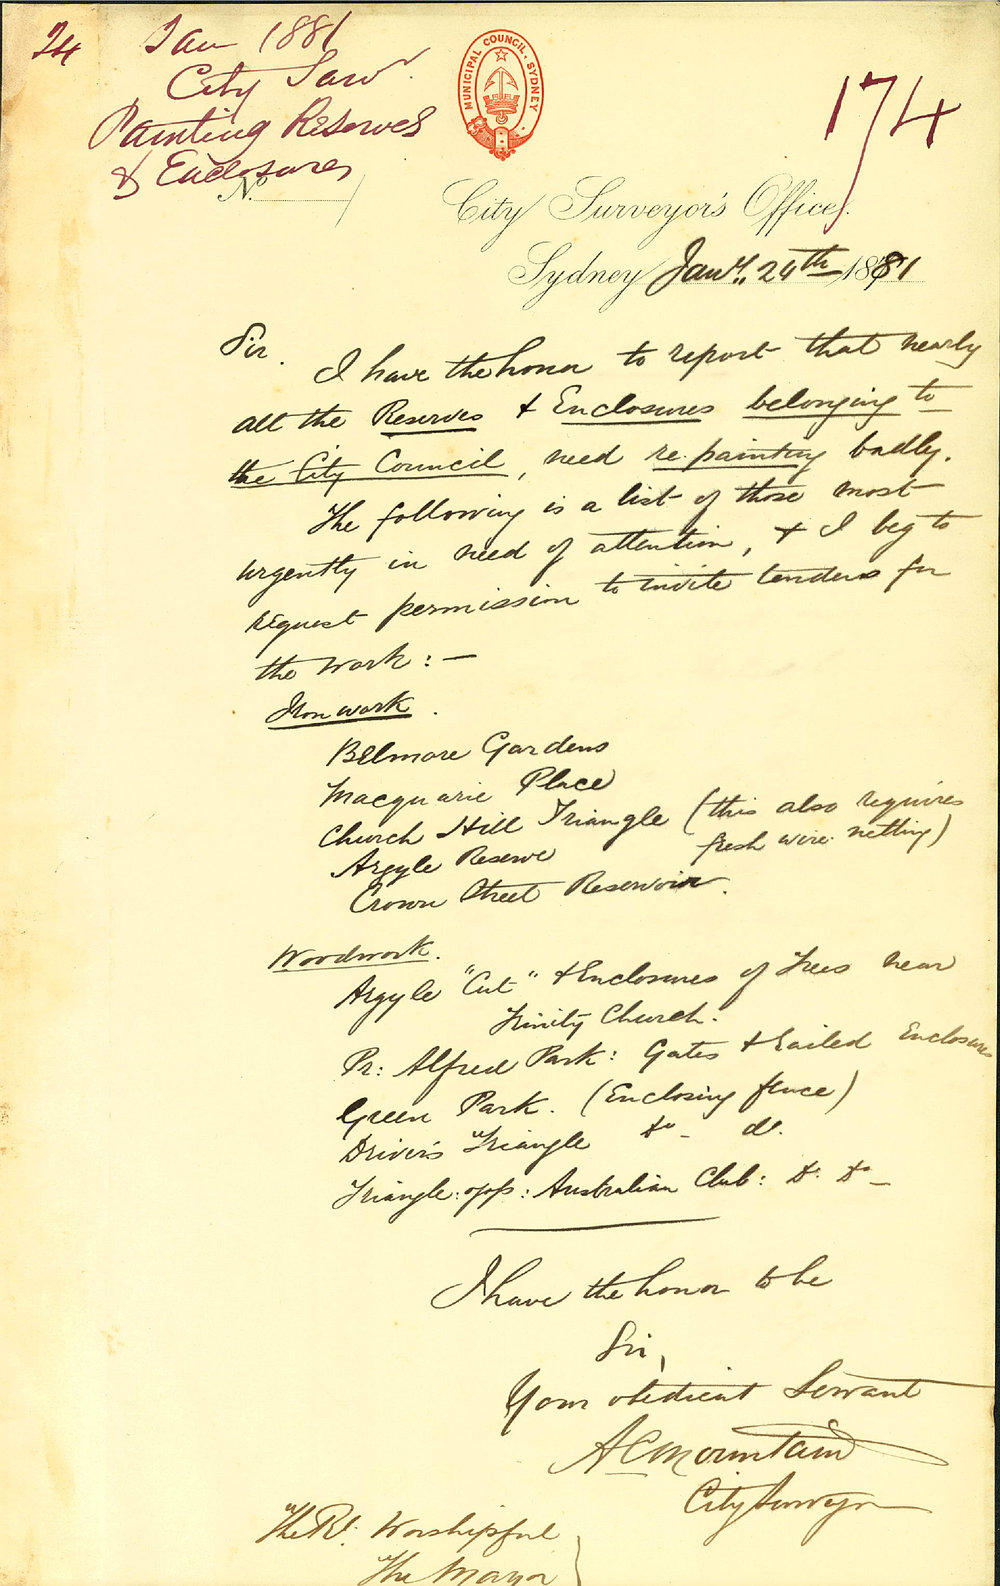 24 Jan 1881
City Surv.
Painting Reserves
& Enclosures
MUNICIPAL COUNCIL. SYDNEY
174
No.
City Surveyor's Office.
Sydney Jany. 24th 1881
Sir.
I have the honor to report that nearly
all the Reserves & Enclosures belonging to
the City Council, need re-painting badly.
The following is a list of those most
urgently in need of attention, & I beg to
request permission to invite tenders for
the work: —
Ironwork.
Belmore Gardens
Macquarie Place
Church Hill Triangle (this also requires
fresh wire netting)
Argyle Reserve
Crown Street Reservoir.
Woodwork.
Argyle "Cut" & Enclosures of Trees near
Trinity Church.
Pr: Alfred Park: Gates & Railed Enclosures
Green Park. (Enclosing fence)
Driver's Triangle Do - do.
Triangle: opp: Australian Club: Do. Do —
I have the honor to be
Sir,
Your obedient Servant
A C Mountain
City Surveyor
The Rt. Worshipful
The Mayor